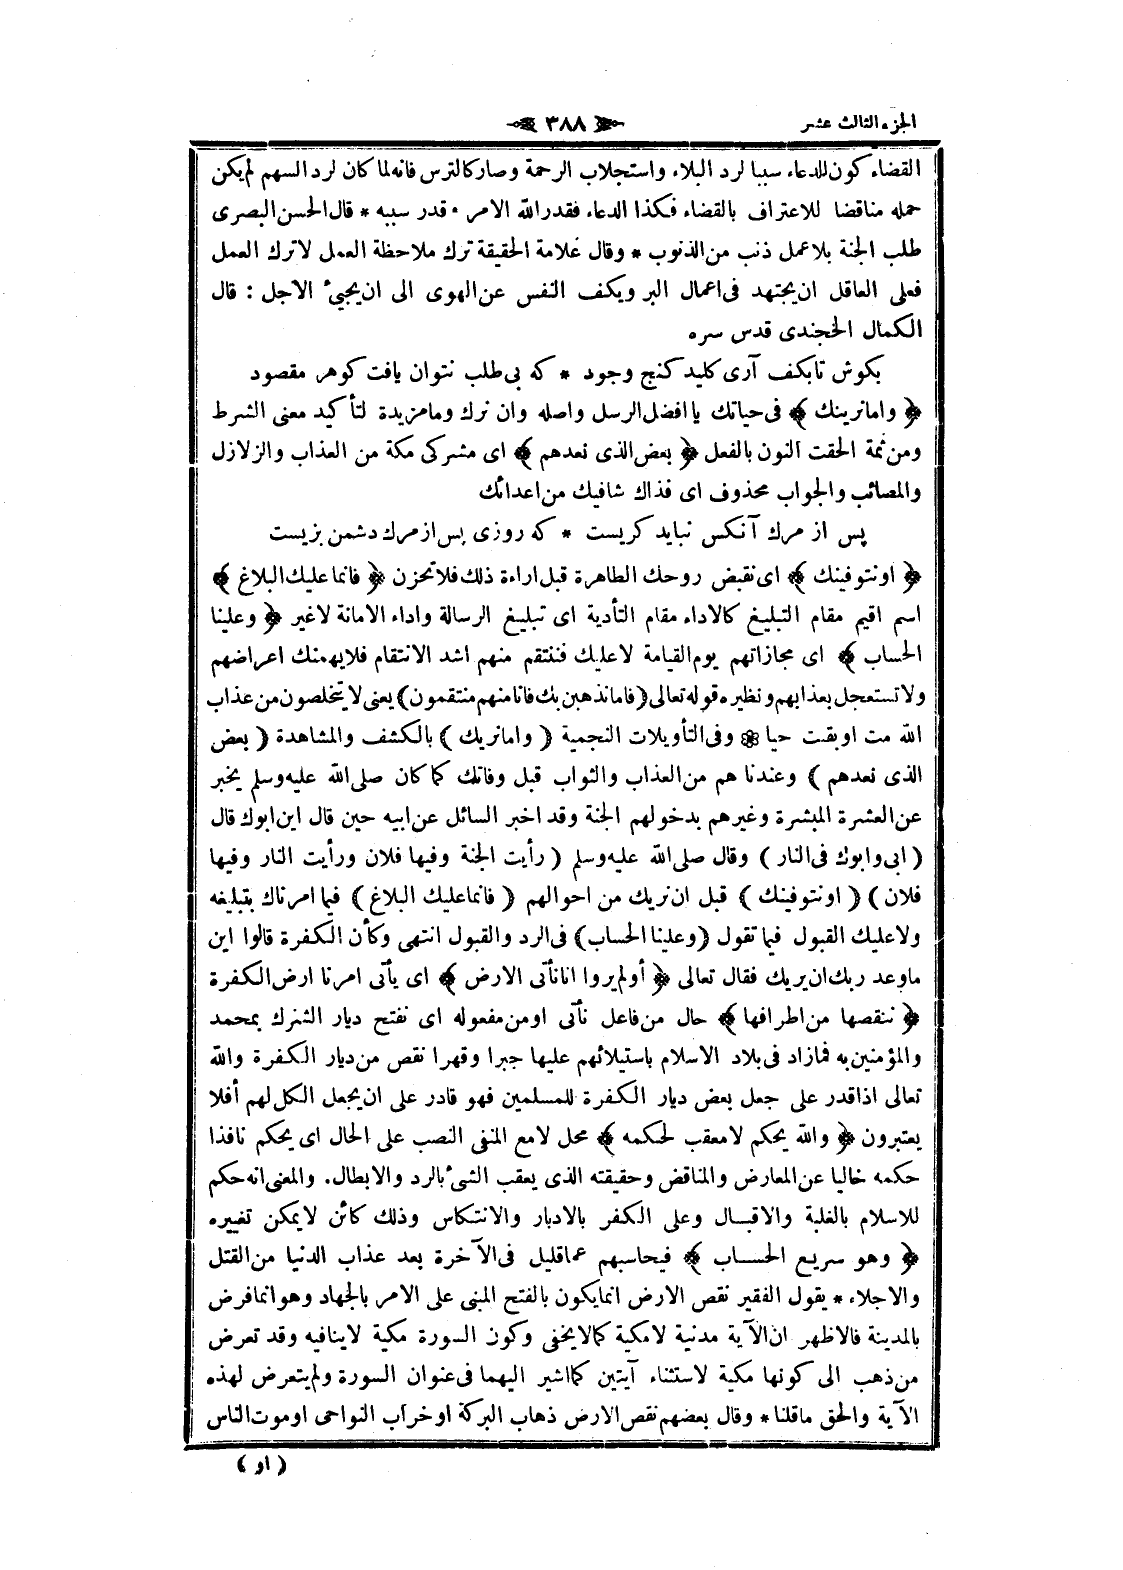 الجزء الثالث عشر
٣٨٨
القضاء كون للدعاء سببا لرد البلاء واستجلاب الرحمة وصار كالترس فانه لما كان لرد السهم لم يكن
حمله مناقضا للاعتراف بالقضاء فكذا الدعاء فقدر الله الامر وقدر سببه * قال الحسن البصرى
طلب الجنة بلا عمل ذنب من الذنوب * وقال علامة الحقيقة ترك ملاحظة العمل لا ترك العمل
فعلى العاقل ان يجتهد فى اعمال البر ويكف النفس عن الهوى الى ان يجيئ الاجل : قال
الكمال الخجندى قدس سره
بكوش تا بكف آرى كليد كنج وجود * كه بى طلب نتوان يافت كوهر مقصود
﴿ واما نرينك ﴾ فى حياتك يا افضل الرسل واصله وان نرك وما مزيدة لتأكيد معنى الشرط
ومن ثمة الحقت النون بالفعل ﴿ بعض الذى نعدهم ﴾ اى مشركى مكة من العذاب والزلازل
والمصائب والجواب محذوف اى فذاك شافيك من اعدائك
پس از مرك آنكس نبايد كريست * كه روزى پس از مرك دشمن بزيست
﴿ او نتوفينك ﴾ اى نقبض روحك الطاهرة قبل اراءة ذلك فلا تحزن ﴿ فانما عليك البلاغ ﴾
اسم اقيم مقام التبليغ كالاداء مقام التأدية اى تبليغ الرسالة واداء الامانة لا غير ﴿ وعلينا
الحساب ﴾ اى مجازاتهم يوم القيامة لا عليك فننتقم منهم اشد الانتقام فلا يهمنك اعراضهم
ولا تستعجل بعذابهم ونظيره قوله تعالى (فاما نذهبن بك فانا منهم منتقمون) يعنى لا يتخلصون من عذاب
الله مت او بقيت حيا ۞ وفى التأويلات النجمية ( واما نريك ) بالكشف والمشاهدة ( بعض
الذى نعدهم ) وعندنا هم من العذاب والثواب قبل وفاتك كما كان صلى الله عليه وسلم يخبر
عن العشرة المبشرة وغيرهم بدخولهم الجنة وقد اخبر السائل عن ابيه حين قال اين ابوك قال
( ابى وابوك فى النار ) وقال صلى الله عليه وسلم ( رأيت الجنة وفيها فلان ورأيت النار وفيها
فلان ) ( او نتوفينك ) قبل ان نريك من احوالهم ( فانما عليك البلاغ ) فيما امرناك بتبليغه
ولا عليك القبول فيما تقول (وعلينا الحساب) فى الرد والقبول انتهى وكأن الكفرة قالوا اين
ما وعد ربك ان يريك فقال تعالى ﴿ أو لم يروا انا نأتى الارض ﴾ اى يأتى امرنا ارض الكفرة
﴿ ننقصها من اطرافها ﴾ حال من فاعل نأتى او من مفعوله اى نفتح ديار الشرك بمحمد
والمؤمنين به فما زاد فى بلاد الاسلام باستيلائهم عليها جبرا وقهرا نقص من ديار الكفرة والله
تعالى اذا قدر على جعل بعض ديار الكفرة للمسلمين فهو قادر على ان يجعل الكل لهم أفلا
يعتبرون ﴿ والله يحكم لا معقب لحكمه ﴾ محل لا مع المنفى النصب على الحال اى يحكم نافذا
حكمه خاليا عن المعارض والمناقض وحقيقته الذى يعقب الشئ بالرد والابطال. والمعنى انه حكم
للاسلام بالغلبة والاقبال وعلى الكفر بالادبار والانتكاس وذلك كائن لا يمكن تغييره
﴿ وهو سريع الحساب ﴾ فيحاسبهم عما قليل فى الآخرة بعد عذاب الدنيا من القتل
والاجلاء * يقول الفقير نقص الارض انما يكون بالفتح المبنى على الامر بالجهاد وهو انما فرض
بالمدينة فالاظهر ان الآية مدنية لا مكية كما لا يخفى وكون السورة مكية لا ينافيه وقد تعرض
من ذهب الى كونها مكية لاستثناء آيتين كما اشير اليهما فى عنوان السورة ولم يتعرض لهذه
الآية والحق ما قلنا * وقال بعضهم نقص الارض ذهاب البركة او خراب النواحى او موت الناس
( او )